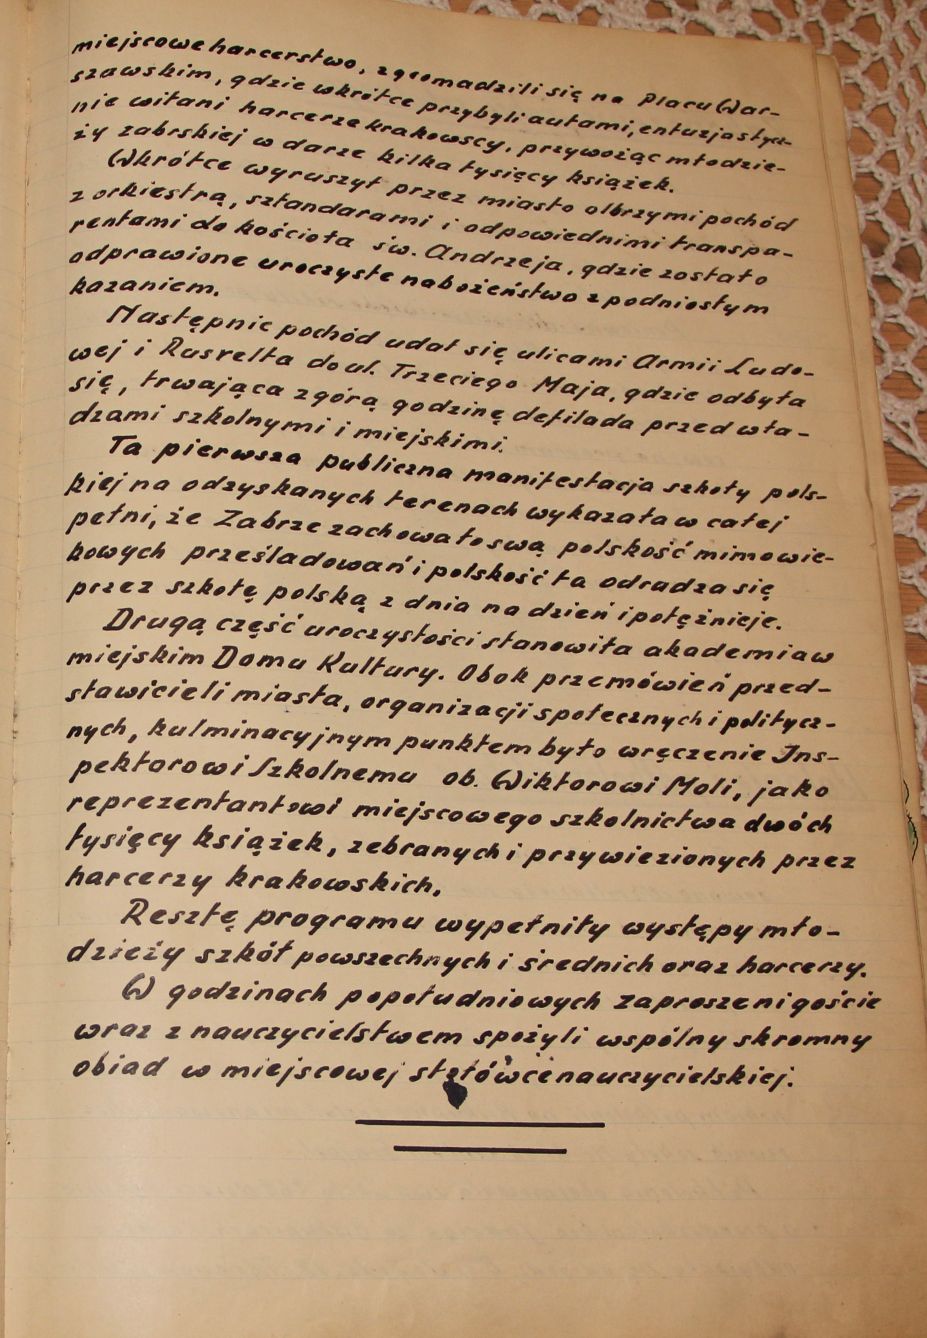 miejscowe harcerstwo, zgromadzili się na Placu War-
szawskim, gdzie wkrótce przybyli autami, entuzjastycz-
nie witani harcerze krakowscy, przywożąc młodzie-
ży zabrskiej w darze kilka tysięcy książek.
Wkrótce wyruszył przez miasto olbrzymi pochód
z orkiestrą, sztandarami i odpowiednimi transpa-
rentami do kościoła św. Andrzeja, gdzie zostało
odprawione uroczyste nabożeństwo z podniosłym
kazaniem.
Następnie pochód udał się ulicami Armii Ludo-
wej i Rusvelta do ul. Trzeciego Maja, gdzie odbyła
się, trwająca zgórą godzinę defilada przed wła-
dzami szkolnymi i miejskimi.
Ta pierwsza publiczna manifestacja szkoły pols-
kiej na odzyskanych terenach wykazała w całej
pełni, że Zabrze zachowało swą polskość mimo wie-
kowych prześladowań i polskość ta odradza się
przez szkołę polską z dnia na dzień i potężnieje.
Drugą część uroczystości stanowiła akademia w
miejskim Domu Kultury. Obok przemówień przed-
stawicieli miasta, organizacji społecznych i politycz-
nych, kulminacyjnym punktem było wręczenie Ins-
pektorowi Szkolnemu ob. Wiktorowi Moli, jako
reprezentantowi miejscowego szkolnictwa dwóch
tysięcy książek, zebranych i przywiezionych przez
harcerzy krakowskich.
Resztę programu wypełniły występy mło-
dzieży szkół powszechnych i średnich oraz harcerzy.
W godzinach popołudniowych zaproszeni goście
wraz z nauczycielstwem spożyli wspólny skromny
obiad w miejscowej stołówce nauczycielskiej.